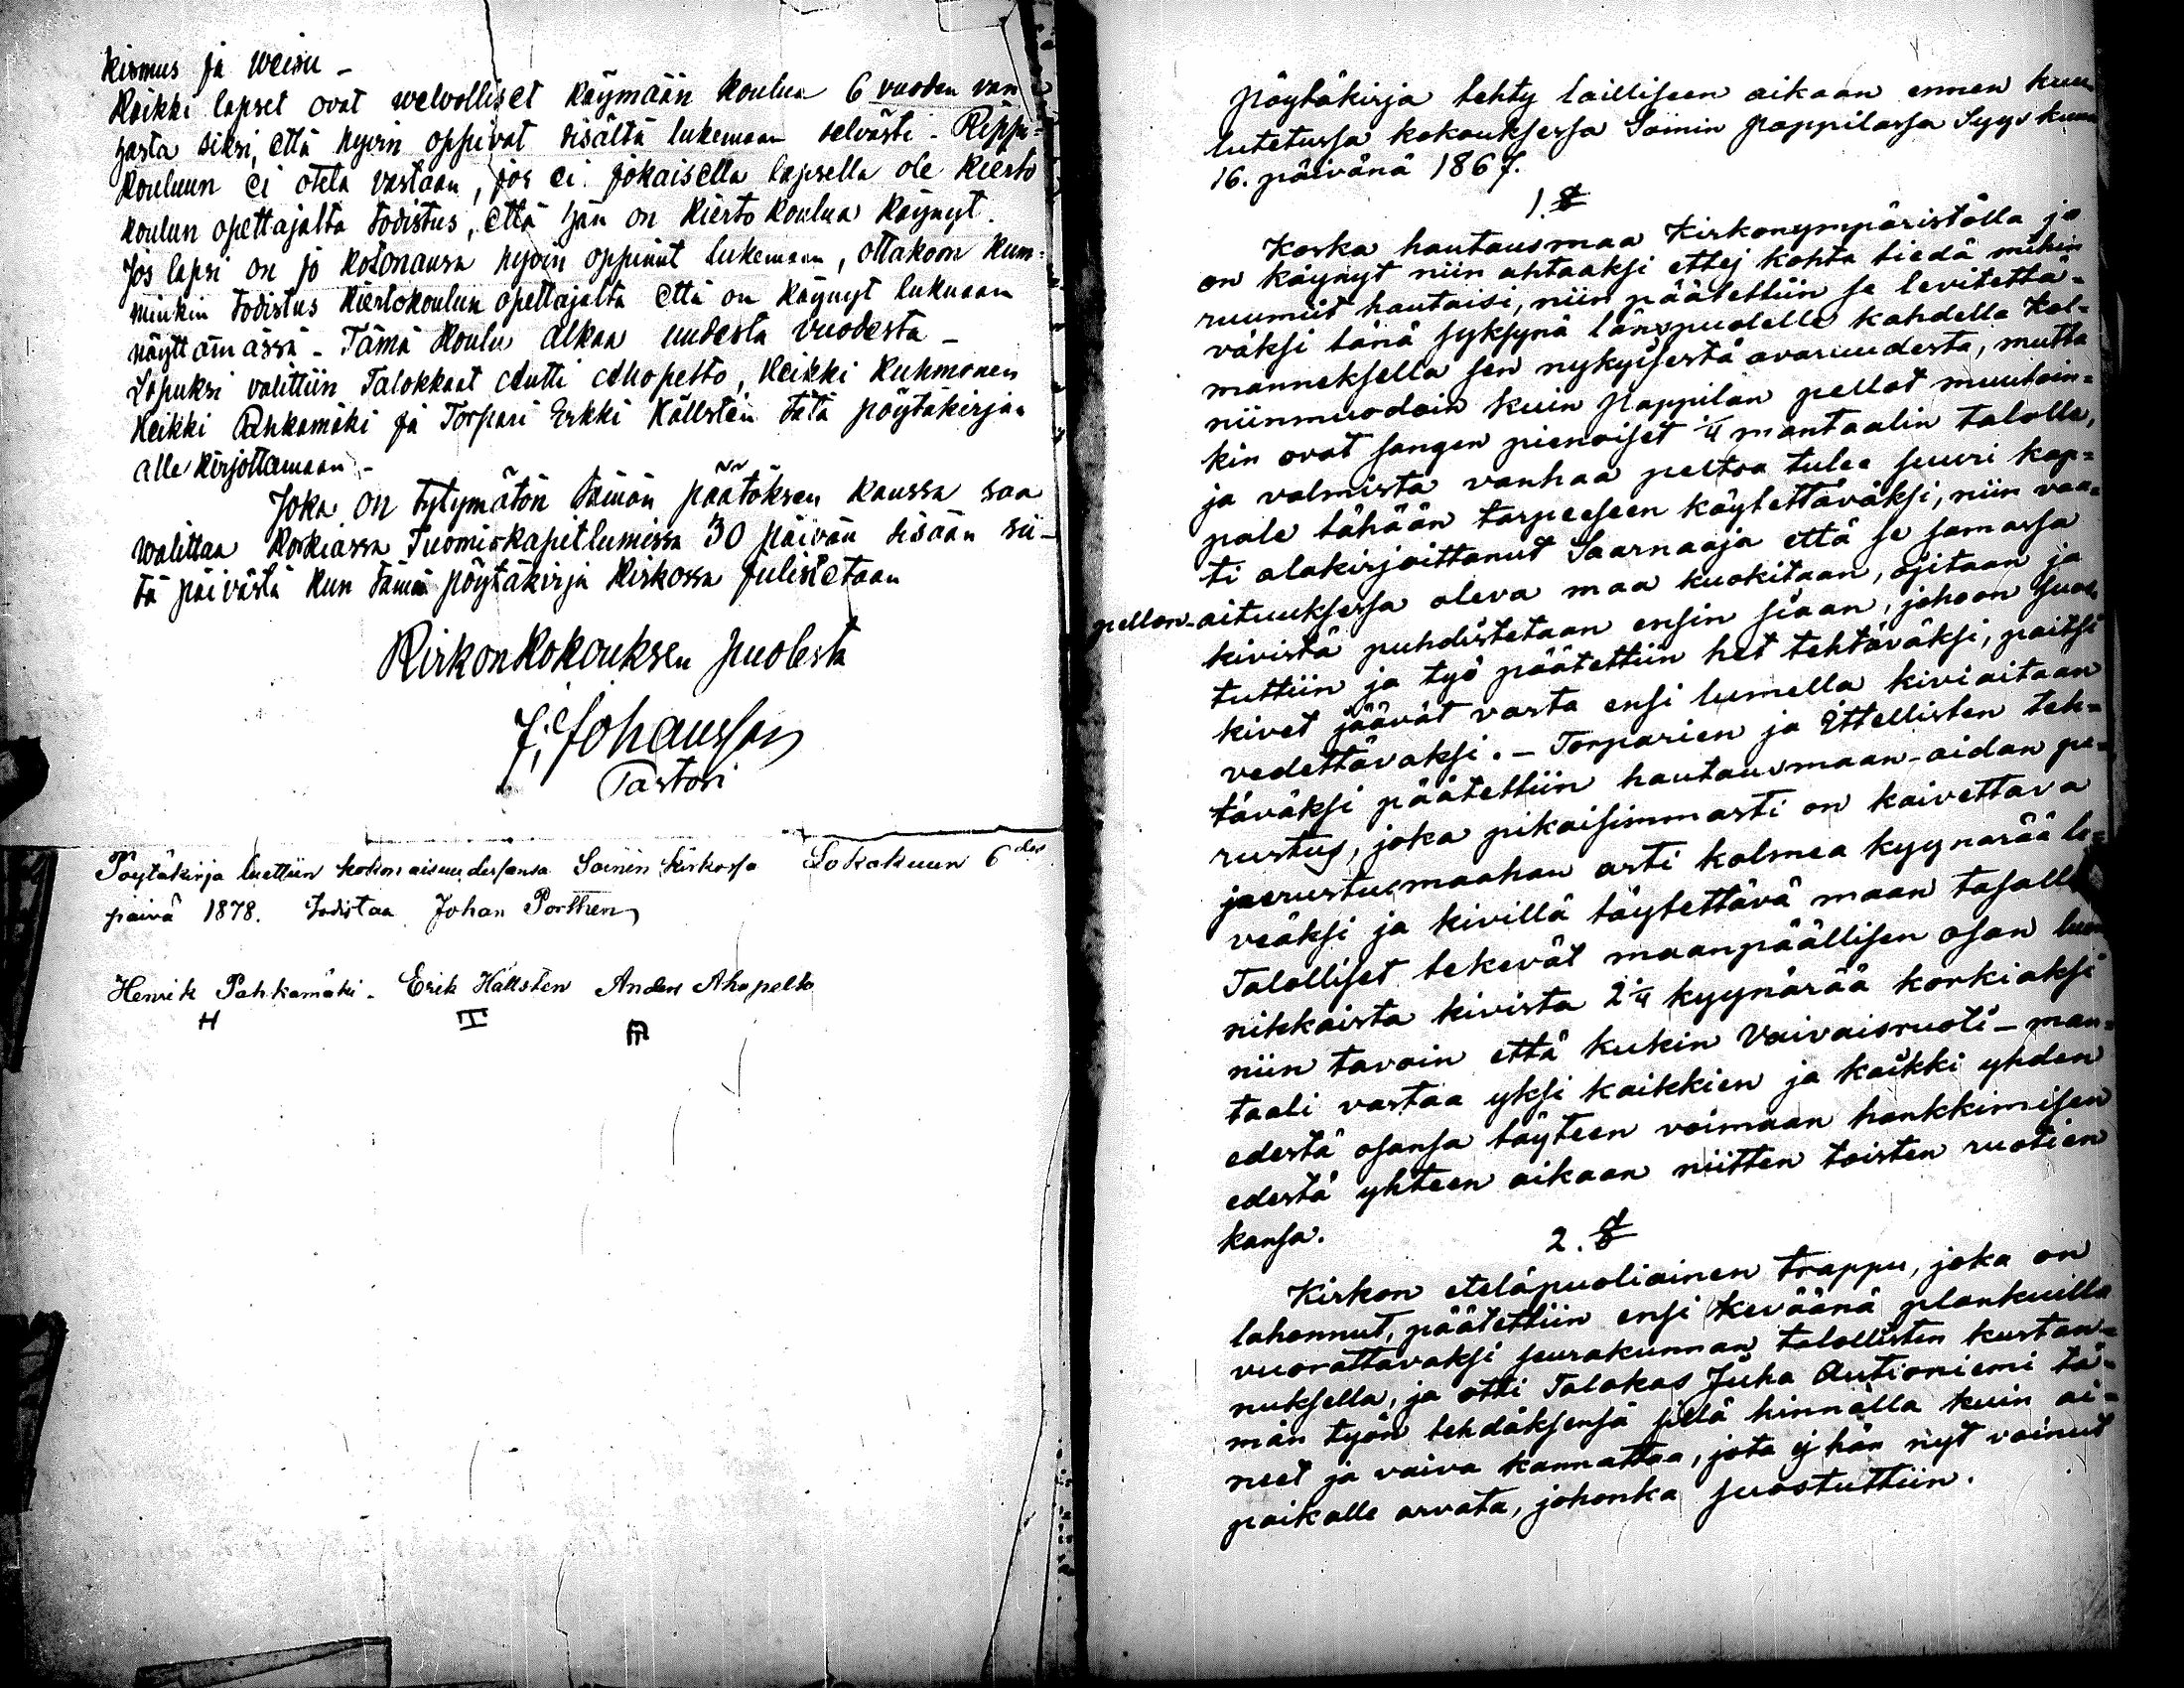 kismus ja weisu -
Kaikki lapset ovat welvolliset käymään koulua 6 vuoden van
hasta siksi, että hyvin oppivat sisältä lukemaan selvästi. Rippi=
kouluun ei oteta vastaan, jos ei jokaisella lapsella ole kierto
koulun opettajalta todistus, että hän on kierto koulua käynyt.
Jos lapsi on jo kotonansa hyvin oppinut lukemaan, ottakoon kum=
minkin todistus kiertokoulun opettajalta että on käynyt lukuaan
näyttämässä - Tämä koulu alkaa uudesta vuodesta -
Lopuksi valittiin Talokkaat Antti Ahopelto, Heikki Kuhmonen
Heikki Pahkamäki ja Torpari Erkki Källsten tätä pöytäkirjaa
alle kirjottamaan. -
Joka on tytymätön tämän päätöksen kanssa saa
walittaa korkiassa Tuomiokapitlumissa 30 päivän sisään sii-
tä päivästä kun tämä pöytäkirja kirkossa julistetaan
Kirkonkokouksen puolesta
J. Johansson
Pastori
Pöytäkirja luettiin kokonaisuudessansa Soinin kirkossa Lokakuun 6 des
päivä 1878. Todistaa Johan Porthen
Henrik Pahkamäki. Erik Hällsten Anders Ahopelto
H I A
Pöytäkirja tehty lailliseen aikaan ennen kuu
lutetussa kokouksessa Soinin pappilassa Syys kuun
16. päivänä 1867.
1. §
Koska hautausmaa Kirkonympäristöllä jo
on käynyt niin ahtaaksi ettej kohta tiedä mihin
ruumiit hautaisi, niin päätettiin se levitettä=
väksi tänä syksynä länspuolelle kahdella kol=
manneksella sen nykyisestä avaruudesta, mutta
niinmuodoin kuin pappilan pellot muutoin=
kin ovat sangen pienoiset 1/4 mantaalin talolla,
ja valmista vanhaa peltoa tulee suuri kap=
pale tähään tarpeeseen käytettäväksi, niin vaa=
ti alakirjoittanut Saarnaaja että se samassa
pellon-aituuksessa oleva maa kuokitaan, ojitaan ja
kivistä puhdistetaan ensin siaan, johoon suos
tuttiin ja työ päätettiin het tehtäväksi, paitsi
kivet jäävät vasta ensi lumella kiviaitaan
vedettäväksi. - Torparien ja Ittellisten teh=
täväksi päätettiin hautausmaan-aidan pe=
rustus, joka pikaisimmasti on kaivettava
jaerustusmaahan asti kolmea kyynärää le=
veäksi ja kivillä täytettävä maan tasalle
Talolliset tekevät maanpäällisen osan luon
nikkaista kivistä 2 1/4 kyynärää korkiaksi
niin tavoin että kukin Vaivaisruoti-man=
taali vastaa yksi kaikkien ja kaikki yhden
edestä osansa täyteen voimaan hankkimisen
edestä yhteen aikaan niitten toisten ruotien
kansa.
2. §
Kirkon eteläpuoliainen trappu, joka on
lahonnut, päätettiin ensi keväänä plankuilla
vuorattavaksi seurakunnan talollisten kustan=
nuksella, ja otti Talokas Juha Autioniemi tä=
män työn tehdäksensä sillä hinnalla kuin ai=
neet ja vaiva kannattaa, jota ej hän nyt voinut
paikalle arvata, johonka suostuttiin.